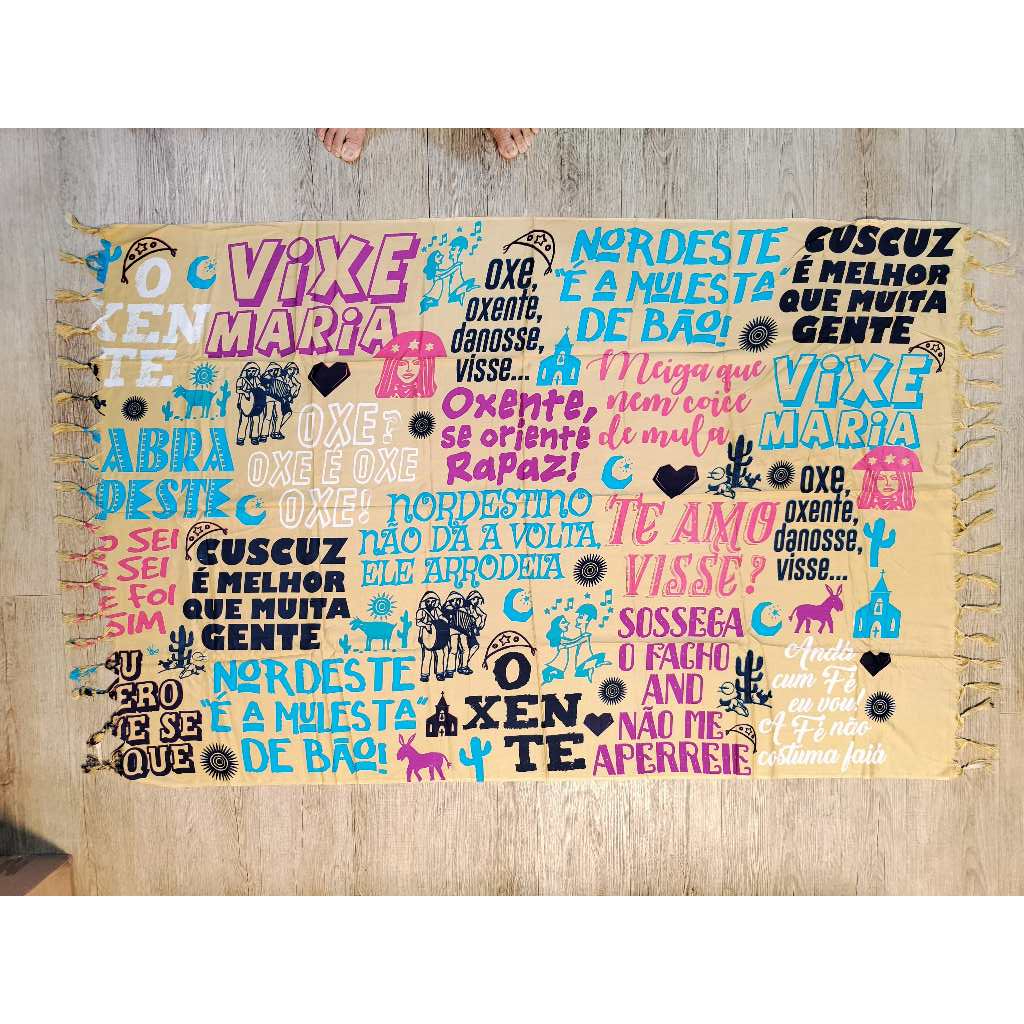 O
XEN
TE
VIXE
MARIA
OXE,
OXENTE,
DANOSSE,
VISSE...
NORDESTE
"É A MULESTA"
DE BÃO!
CUSCUZ
É MELHOR
QUE MUITA
GENTE
Meiga que
nem coice
de mula
VIXE
MARIA
OXE?
OXE É OXE
OXE!
Oxente,
se oriente
Rapaz!
CABRA
PESTE
NORDESTINO
NÃO DÁ A VOLTA,
ELE ARRODEIA
TE AMO
VISSE?
OXE,
OXENTE,
DANOSSE,
VISSE...
SEI
SEI
FOI
SIM
CUSCUZ
É MELHOR
QUE MUITA
GENTE
SOSSEGA
O FACHO
AND
NÃO ME
APERREIE
Andá
cum Fé
eu vou!
A Fé não
costuma faiá
ERO
E SE
QUE
NORDESTE
"É A MULESTA"
DE BÃO!
O
XEN
TE